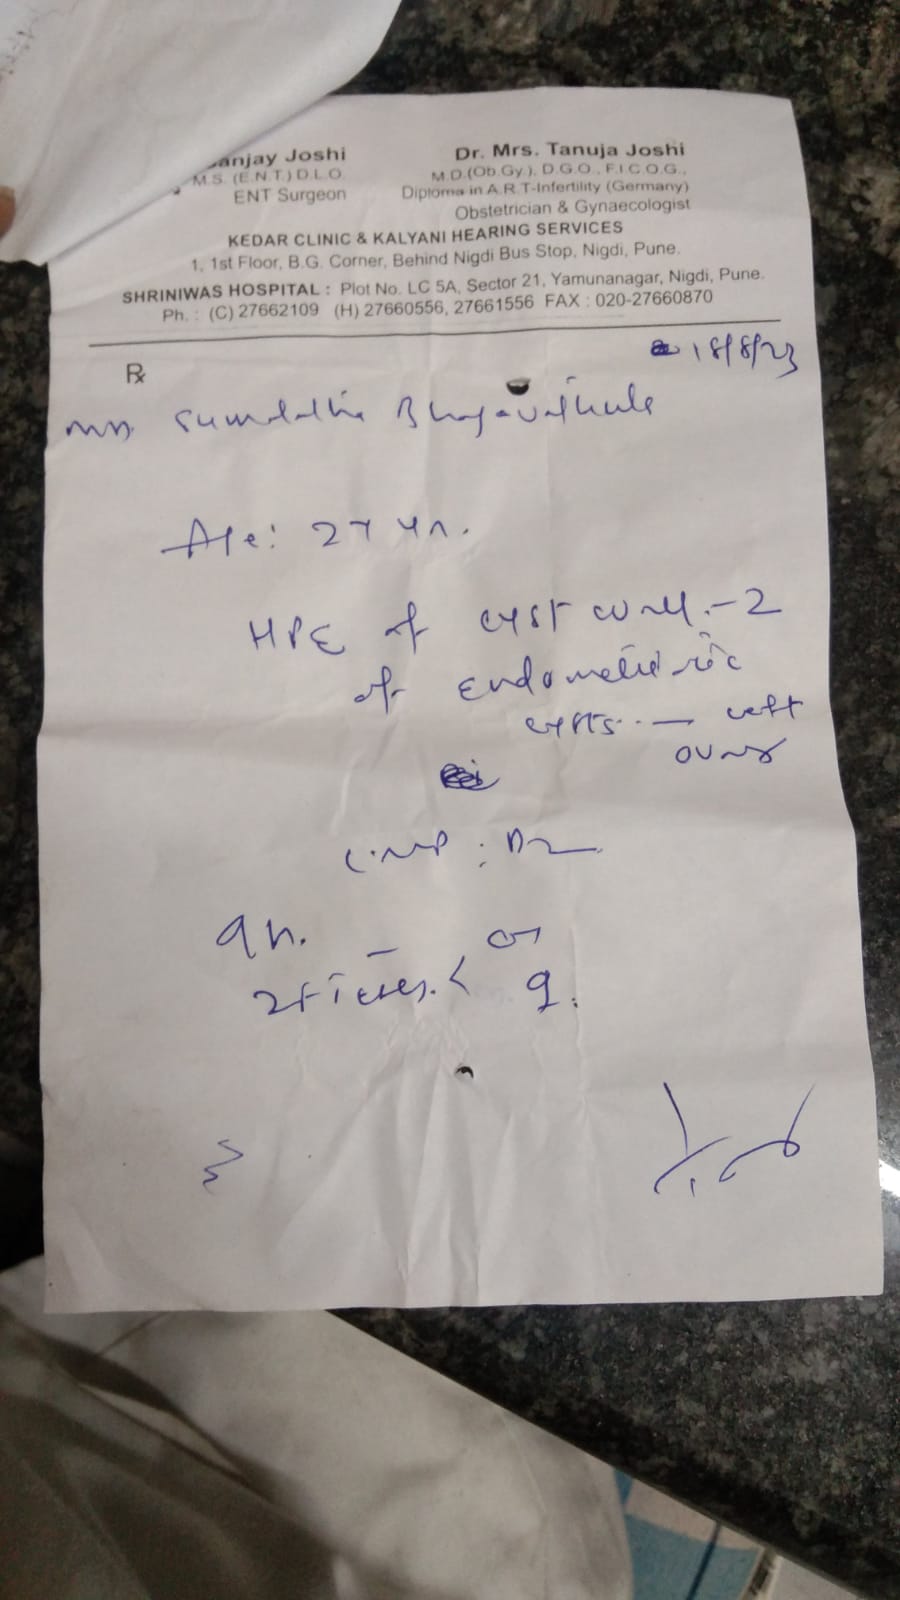 anjay Joshi
M.S. (E.N.T.) D.L.O.
ENT Surgeon
Dr. Mrs. Tanuja Joshi
M.D.(Ob.Gy.), D.G.O., F.I.C.O.G.,
Diploma in A.R.T-Infertility (Germany)
Obstetrician & Gynaecologist
KEDAR CLINIC & KALYANI HEARING SERVICES
1, 1st Floor, B.G. Corner, Behind Nigdi Bus Stop, Nigdi, Pune.
SHRINIWAS HOSPITAL : Plot No. LC 5A, Sector 21, Yamunanagar, Nigdi, Pune.
Ph. : (C) 27662109 (H) 27660556, 27661556 FAX : 020-27660870
18/8/23
℞
Mrs.
Age: 27 yr.
HPE of cyst wall - 2
of endometriotic
cysts - left
ovary
LMP :